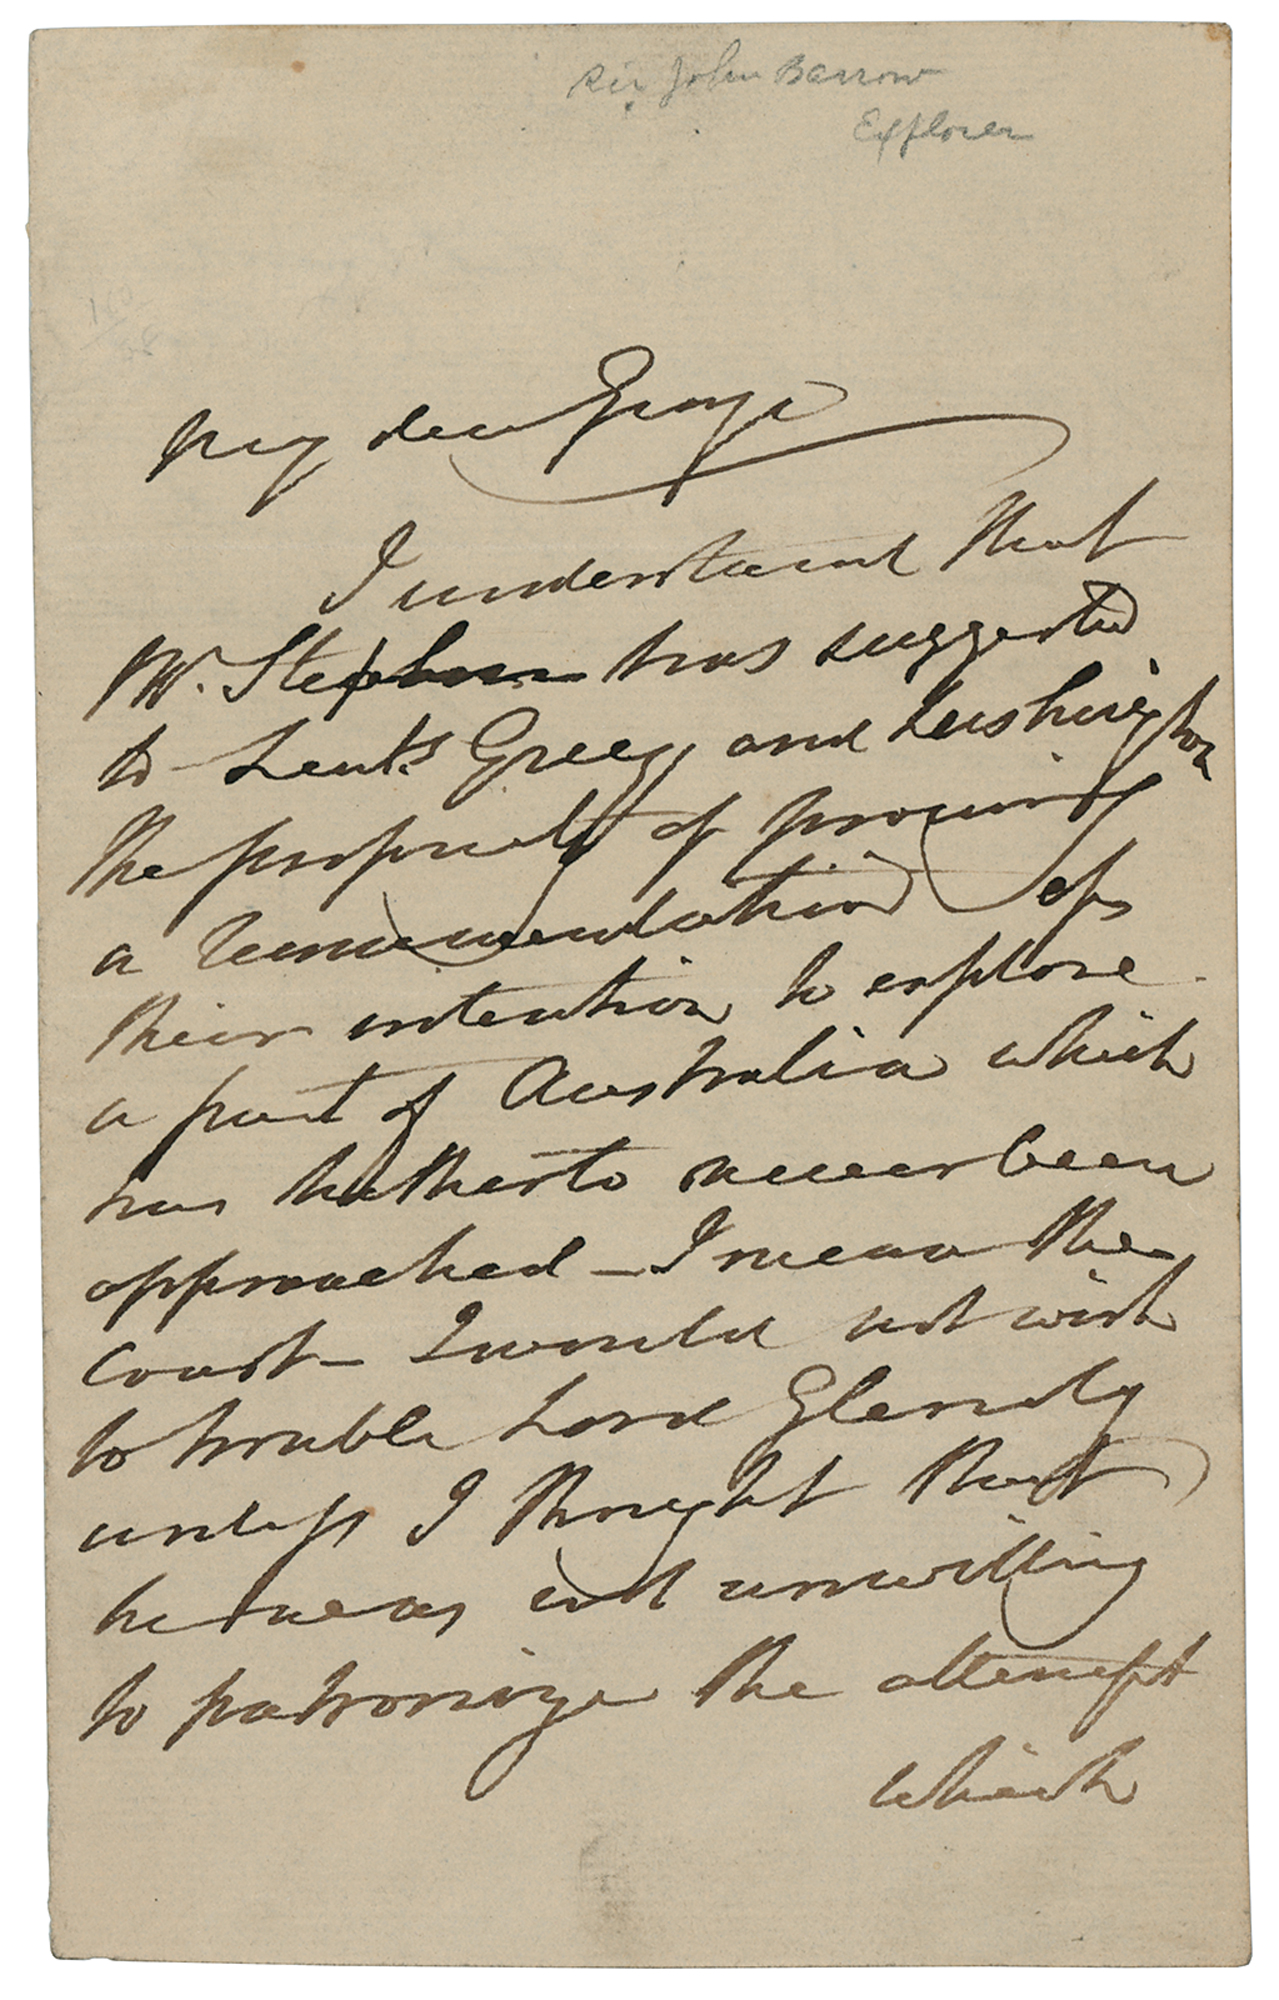 Sir John Barrow
Explorer
100
58
My dear George
I understand that
Mr. Stephen has suggested
to Leuts. Greey and Lushington
the propriety of procuring
a recommendation of
their intention to explore
a part of Australia which
has hitherto never been
approached – I mean the
coast – I would not wish
to trouble Lord Glenelg
unless I thought that
he was not unwilling
to patronize the attempt
which